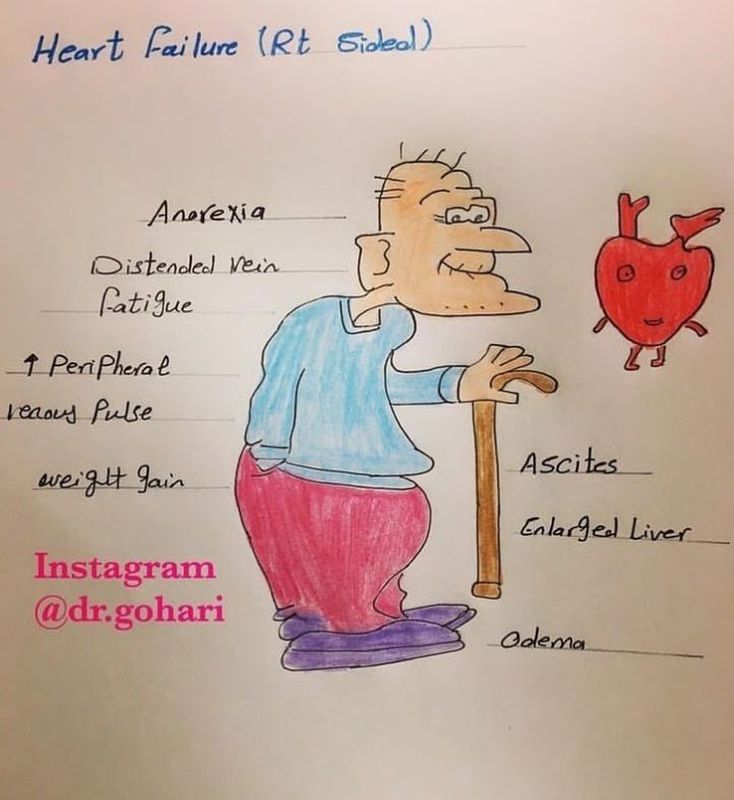 Heart Failure (Rt Sided)
Anorexia
Distended vein
fatigue
↑ Peripheral
venous Pulse
weight gain
Ascites
Enlarged Liver
Odema
Instagram
@dr.gohari